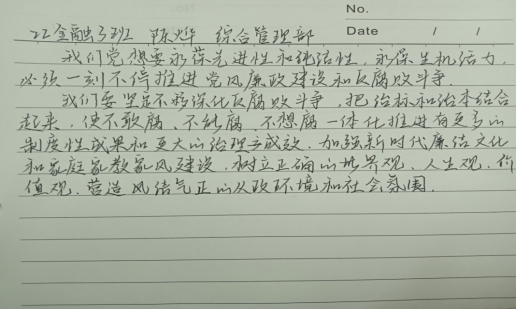 No.
Date / /
22金融3班 陈烨 综合管理部
我们党想要永葆先进性和纯洁性,永保生机活力,
必须一刻不停推进党风廉政建设和反腐败斗争。
我们要坚定不移深化反腐败斗争,把治标和治本结合
起来,使不敢腐、不能腐、不想腐一体化推进有更多的
制度性成果和更大的治理成效,加强新时代廉洁文化
和家庭家教家风建设,树立正确的世界观、人生观、价
值观,营造风清气正的从政环境和社会氛围.